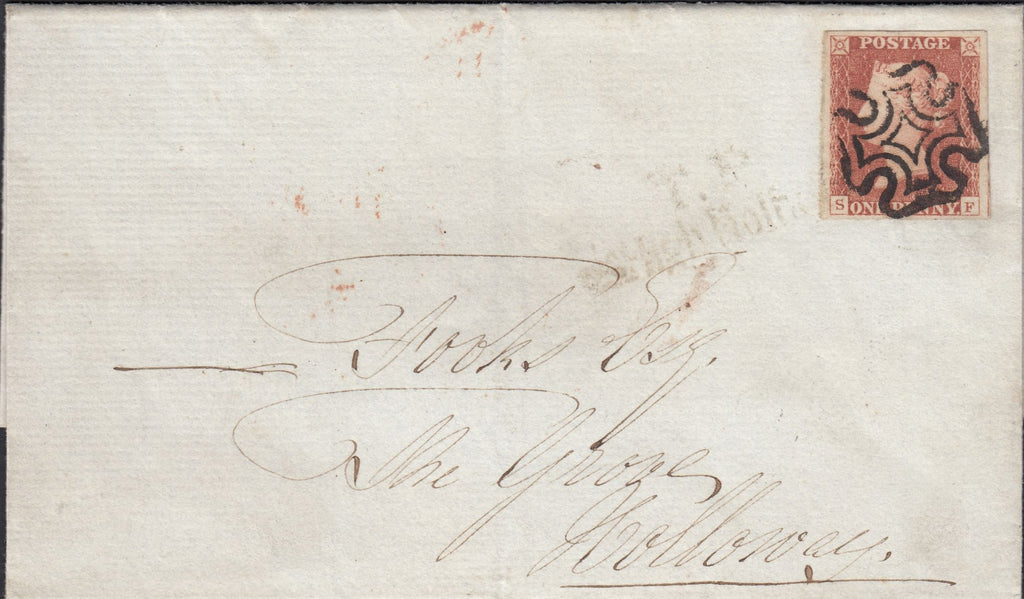 POSTAGE
S ONE PENNY F
T.P
Fooks Esq.
The Grove
Holloway.